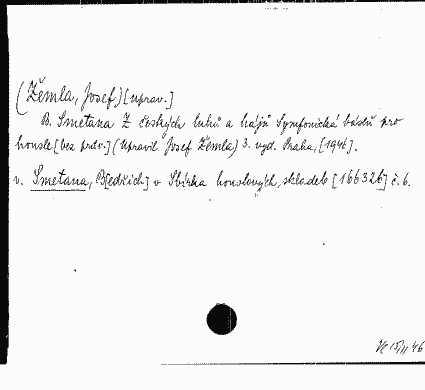 (Žemla, Josef) [uprav.]
B. Smetana Z českých luhů a hájů Symfonická báseň pro
housle [bez prův.] (Upravil Josef Žemla) 3. vyd. Praha, [1946].
v. Smetana, B[edřich] v Sbírka houslových skladeb [166326] č. 6.
15/II 46